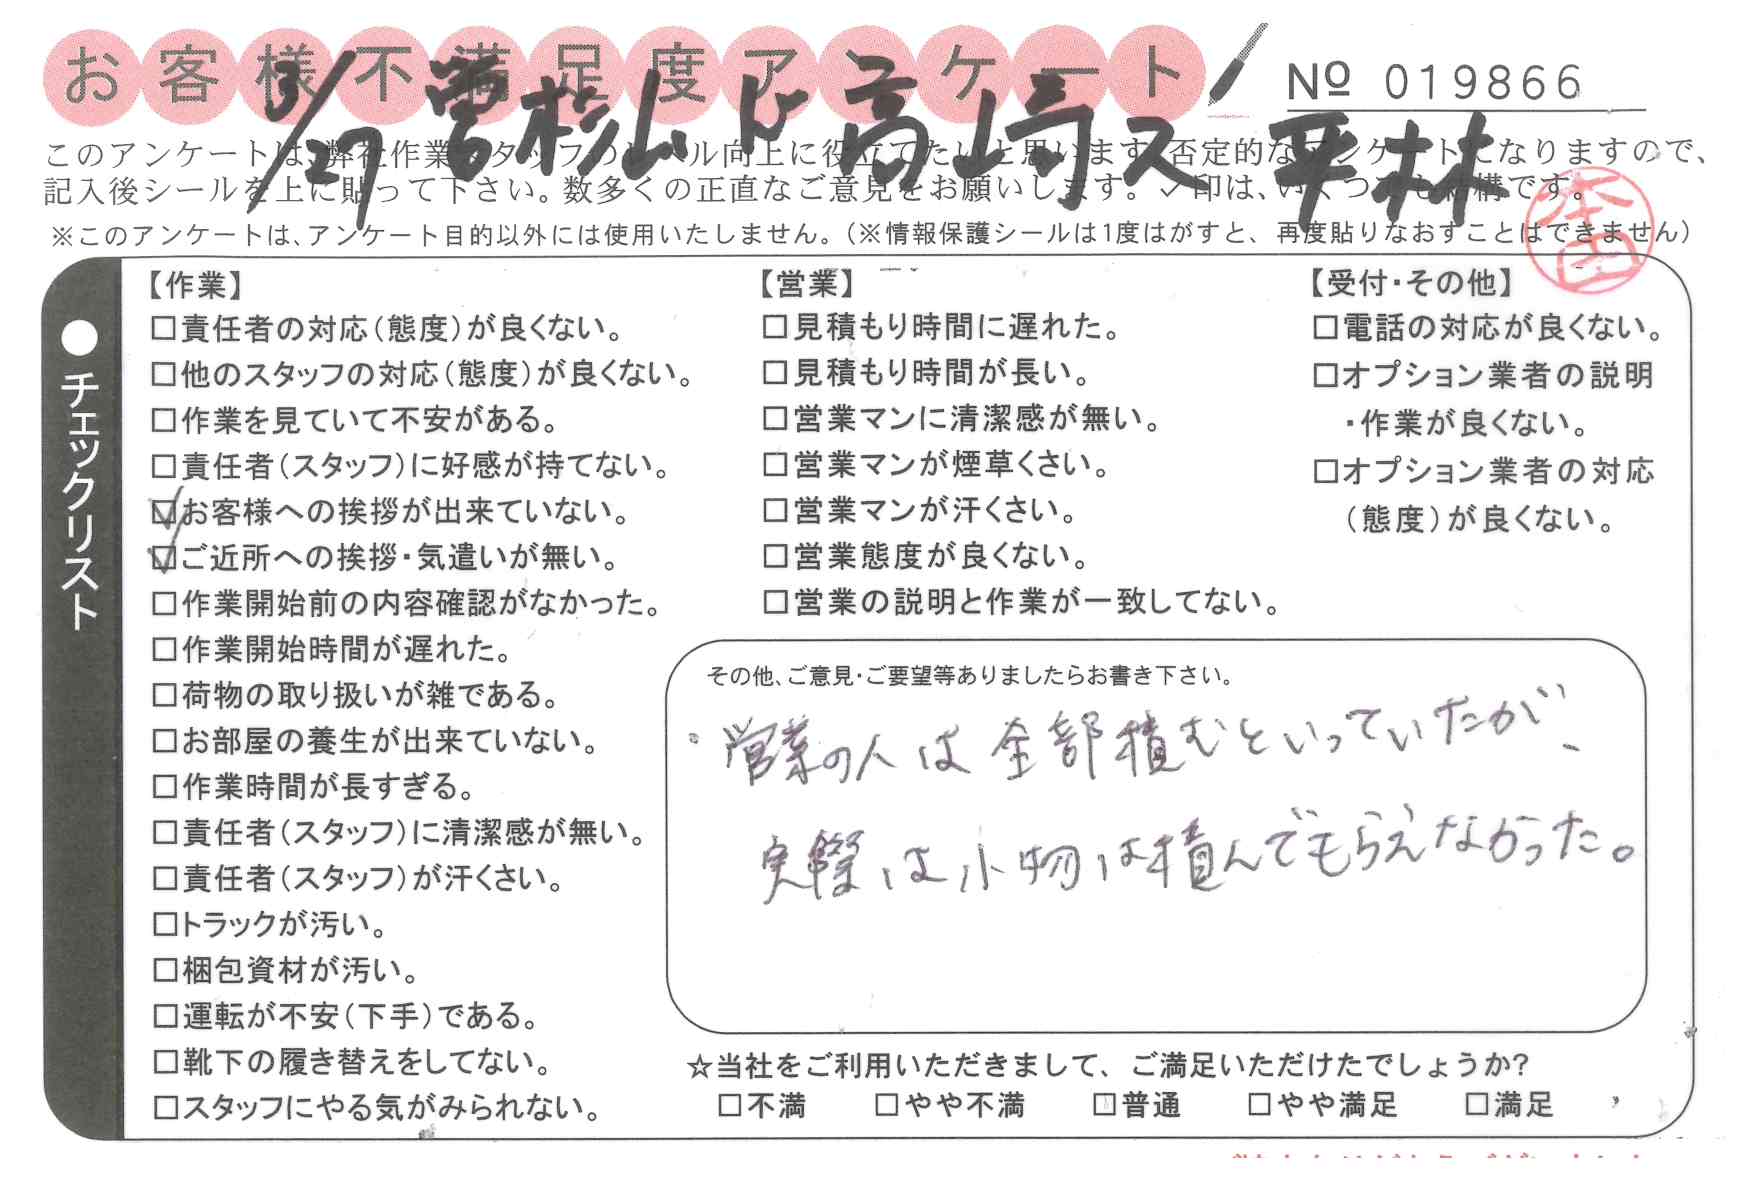 お客様不満足度アンケート
№ 019866
3/27 営杉山 ド高崎 ス平林
このアンケートは、弊社作業スタッフのレベル向上に役立てたいと思います。否定的なアンケートになりますので、
記入後シールを上に貼って下さい。数多くの正直なご意見をお願いします。✓印は、いくつでも結構です。
※このアンケートは、アンケート目的以外には使用いたしません。（※情報保護シールは1度はがすと、再度貼りなおすことはできません）
本田
●チェックリスト
【作業】
□責任者の対応（態度）が良くない。
□他のスタッフの対応（態度）が良くない。
□作業を見ていて不安がある。
□責任者（スタッフ）に好感が持てない。
☑お客様への挨拶が出来ていない。
☑ご近所への挨拶・気遣いが無い。
□作業開始前の内容確認がなかった。
□作業開始時間が遅れた。
□荷物の取り扱いが雑である。
□お部屋の養生が出来ていない。
□作業時間が長すぎる。
□責任者（スタッフ）に清潔感が無い。
□責任者（スタッフ）が汗くさい。
□トラックが汚い。
□梱包資材が汚い。
□運転が不安（下手）である。
□靴下の履き替えをしてない。
□スタッフにやる気がみられない。
【営業】
□見積もり時間に遅れた。
□見積もり時間が長い。
□営業マンに清潔感が無い。
□営業マンが煙草くさい。
□営業マンが汗くさい。
□営業態度が良くない。
□営業の説明と作業が一致してない。
【受付・その他】
□電話の対応が良くない。
□オプション業者の説明
・作業が良くない。
□オプション業者の対応
（態度）が良くない。
その他、ご意見・ご要望等ありましたらお書き下さい。
・営業の人は全部積むといっていたが、
実際は小物は積んでもらえなかった。
☆当社をご利用いただきまして、ご満足いただけたでしょうか?
□不満 □やや不満 □普通 □やや満足 □満足